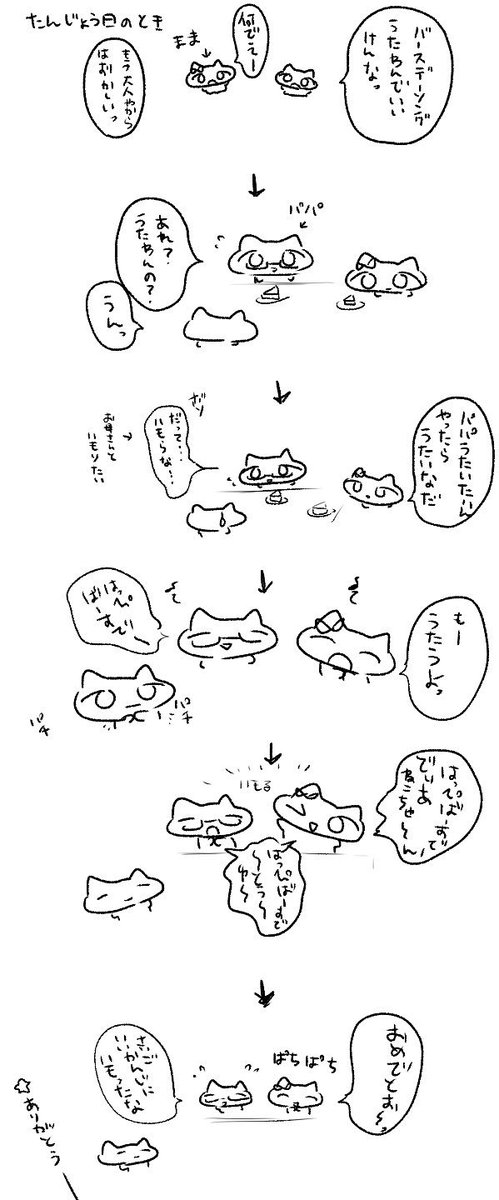 たんじょう日のとき
バースデーソング
うたわんでいい
けんなっ
何でえー
まま
もう大人やから
はずかしいっ
パパ
あれ?
うたわんの?
うんっ
パパうたいたいん
やったら
うたいなだ
ガソ
だって…
ハモらな…
お母さんと
ハモりたい
もー
うたうよっ
はっぴー
ばーすでー
パチ
パチ
はっぴばーすで
でぃあ
ねこちゃーん
ハモる
はっぴばーすで
〜とぅー
ゆ〜
おめでとおーっ
ぱちぱち
さいご
いいかんじに
ハモったな
☆ありがとう